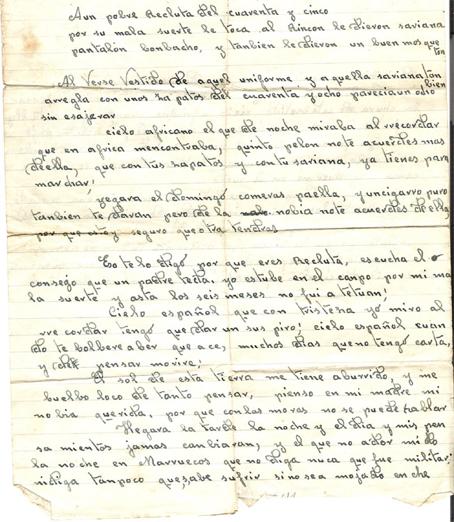 Aun pobre Recluta del cuarenta y cinco
por su mala suerte le toca al Rincon le dieron saviana
pantalón bonbacho, y tanbien le dieron un buen mosque
tón
Al Verse Vestido de aquel uniforme y aquella saviana tan bien
arregla con unos zapatos del cuarenta y ocho pareciaun odio
sin esajerar
cielo africano el que de noche miraba al rrecordar
que en africa mencontraba, quinto pelon note acuerdes mas
deella, que con tus zapatos y contu saviana, ya tienes para
marchar;
yegara el domingó comeras paella, yuncigarro puro
tanbien te davan pero de la nobia note acuerdes deella
por que estoy seguro que otra tendras
Eo te lo digó por que eres Recluta, escucha el
consegó que un padre tedia yo estube en el canpo por mi ma
la suerte y asta los seis meses no fui a tetuan;
Cielo español que con tristesa yo miro al
rre cordar tengó que dar un sus piro; cielo español cuan
do te bolbereaber que ace, muchos dias que no tengó carta,
y de pensar morire;
El sol de esta tierra me tiene aburrido, y me
buelbo loco de tanto pensar, pienso en mi madre mi
no bia querida, por que con las moras no se puede hablar
Hegara la tarde la noche y el dia y mis pen
sa mientos jamas canbiaran, y el que no a dor mido
la noche en Marruecos que no diga nuca que fue militar
nidiga tanpoco que sabe sufrir sinosea mojado en che